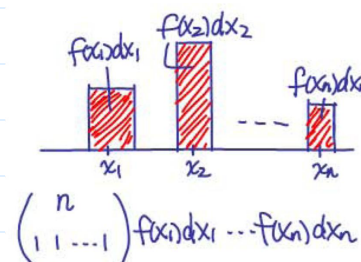 f(x₁)dx₁ f(x₂)dx₂ f(xₙ)dx
--- 
x₁ x₂ xₙ
n
( 1 1 ... 1 ) f(x₁)dx₁ ... f(xₙ)dxₙ